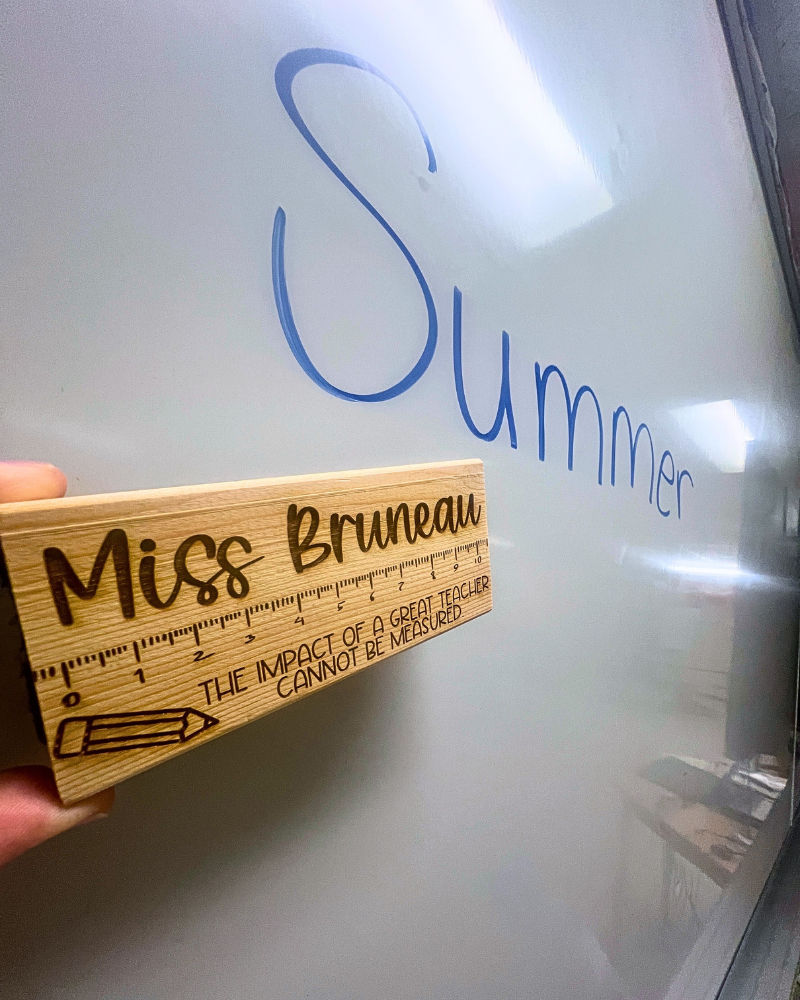 Summer
Miss Bruneau
0 1 2 3 4 5 6 7 8 9 10
THE IMPACT OF A GREAT TEACHER
CANNOT BE MEASURED